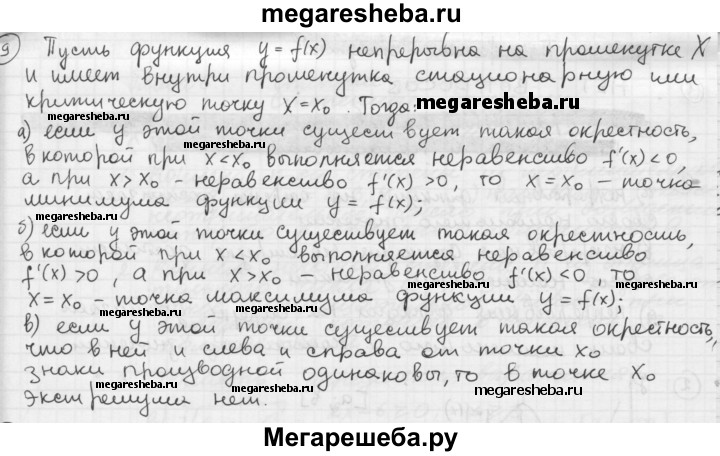 megaresheba.ru
9 Пусть функция y = f(x) непрерывна на промежутке X
и имеет внутри промежутка стационарную или
критическую точку x = x₀. Тогда:
megaresheba.ru
megaresheba.ru
а) если у этой точки существует такая окрестность,
в которой при x < x₀ выполняется неравенство f'(x) < 0,
а при x > x₀ - неравенство f'(x) > 0, то x = x₀ – точка
минимума функции y = f(x);
megaresheba.ru
megaresheba.ru
б) если у этой точки существует такая окрестность,
в которой при x < x₀ выполняется неравенство
megaresheba.ru
megaresheba.ru
f'(x) > 0, а при x > x₀ – неравенство f'(x) < 0, то
x = x₀ - точка максимума функции y = f(x);
megaresheba.ru
megaresheba.ru
в) если у этой точки существует такая окрестность,
что в ней и слева и справа от точки x₀
знаки производной одинаковы, то в точке x₀
megaresheba.ru
megaresheba.ru
экстремума нет.
Мегарешеба.ру